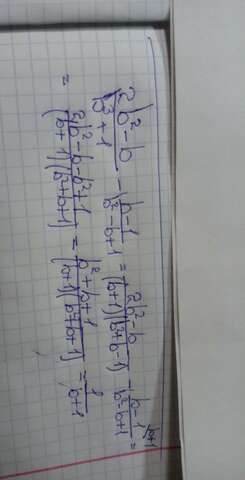 (2b²-b)/(b³+1) - (b-1)/(b²-b+1) = (2b²-b)/((b+1)(b²+b-1)) - (b-1)/(b²-b+1) /b+1 =
= (2b²-b-b²+1)/((b+1)(b²+b+1)) = (b²+b+1)/((b+1)(b²+b+1)) = 1/(b+1)